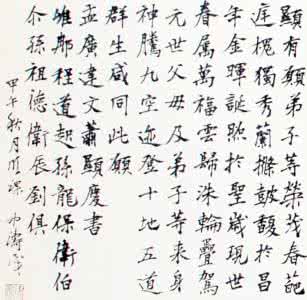 顯有願弟子等榮茂春葩
庭槐獨秀蘭條鼓馥於昌
年金暉誕照於聖歲現世
眷属萬福雲歸洙輪疊駕
元世父母及弟子等来身
神騰九空迹登十地五道
群生咸同此願
孟廣達文蕭顯慶書
惟那程道起孫龍保衛伯
介孫祖德衛辰劉俱
甲午秋月